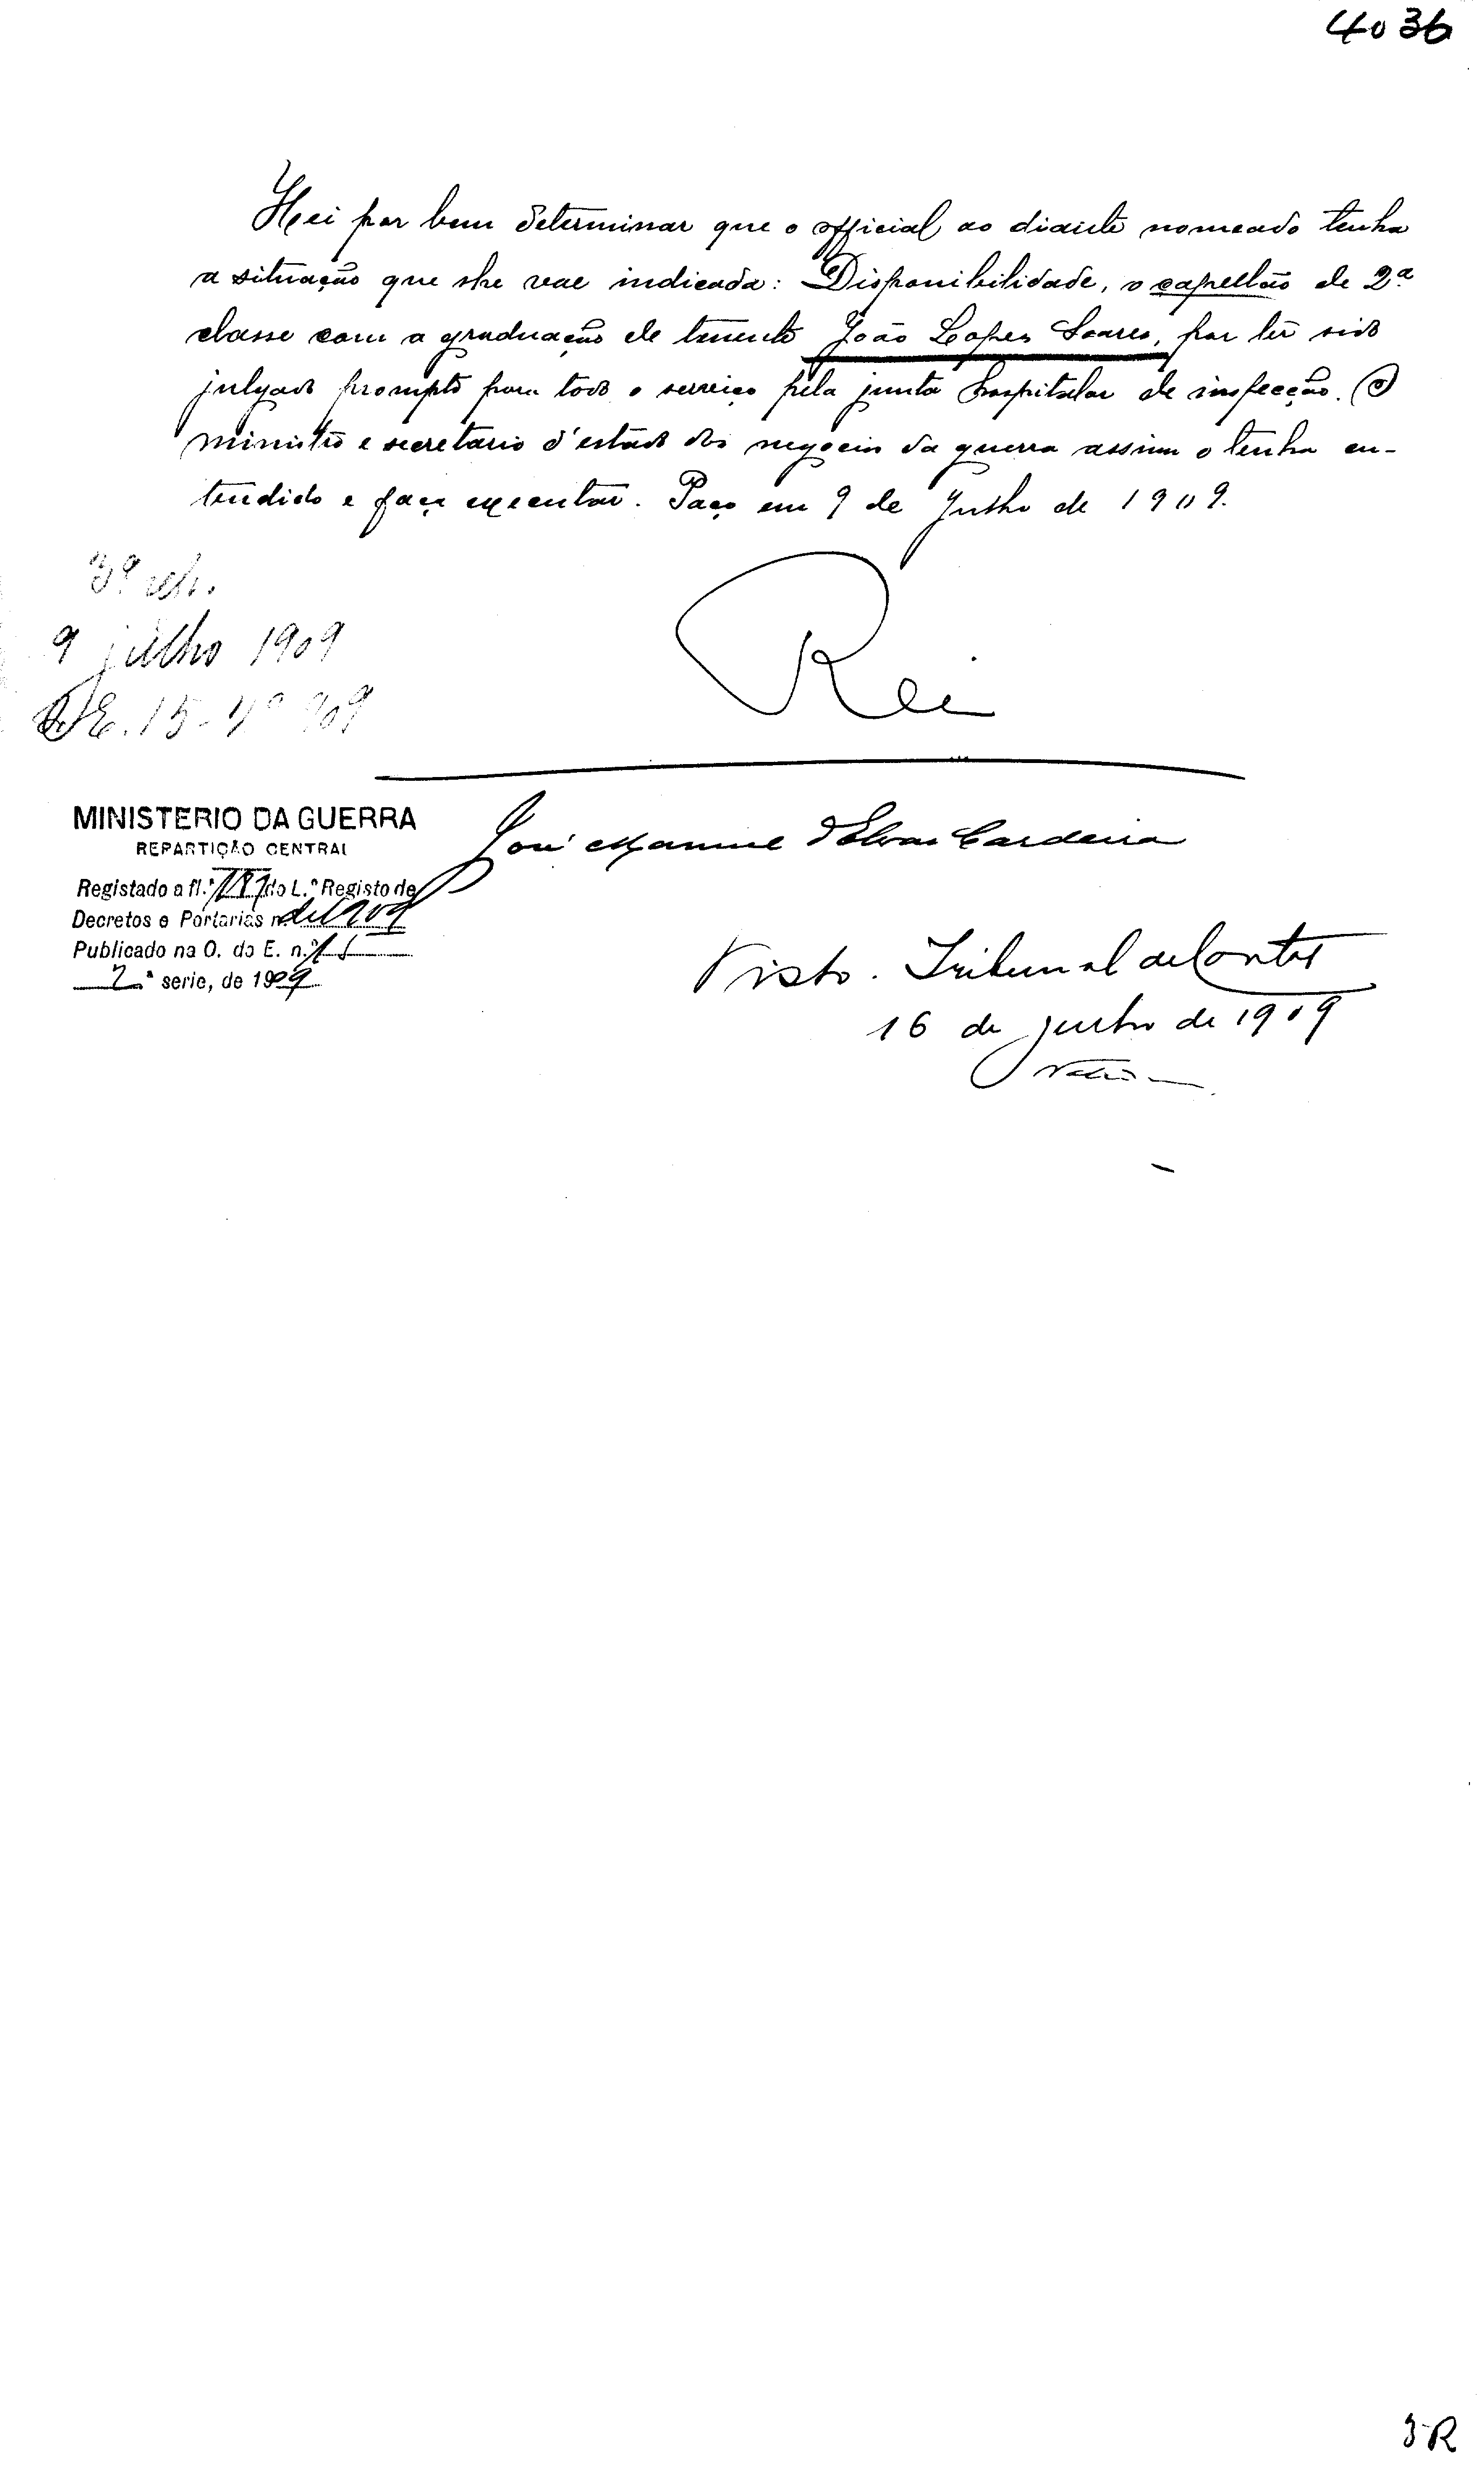 4036
Hei por bem determinar que o official ao diante nomeado tenha
a situação que lhe vae indicada: Disponibilidade, o capellão de 2ª
classe com a graduação de tenente João Lopes Soares, por ter sido
julgado prompto para todo o serviço pela junta hospitalar de inspecção. O
ministro e secretario d'estado dos negocios da guerra assim o tenha en-
tendido e faça executar. Paço em 9 de Julho de 1909.
Rei
3ª rep.
9 julho 1909
O.E. 15-2ª 909
José Manuel d'Elvas Cardeira
MINISTERIO DA GUERRA
REPARTIÇÃO CENTRAL
Registado a fl.ˢ do L.º Registo de
Decretos e Portarias n. de 1909
Publicado na O. do E. n.º 15
2.ª serie, de 1909
Visto. Tribunal de Contas
16 de julho de 1909
3R